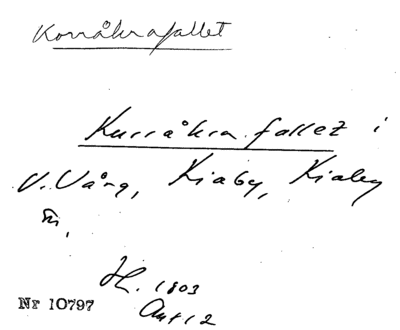 Korråkrafallet
Kurråkra fallet i
V. Vång, Kiaby, Kiaby
sn,
H. 1803
Ant 12
Nr 10797